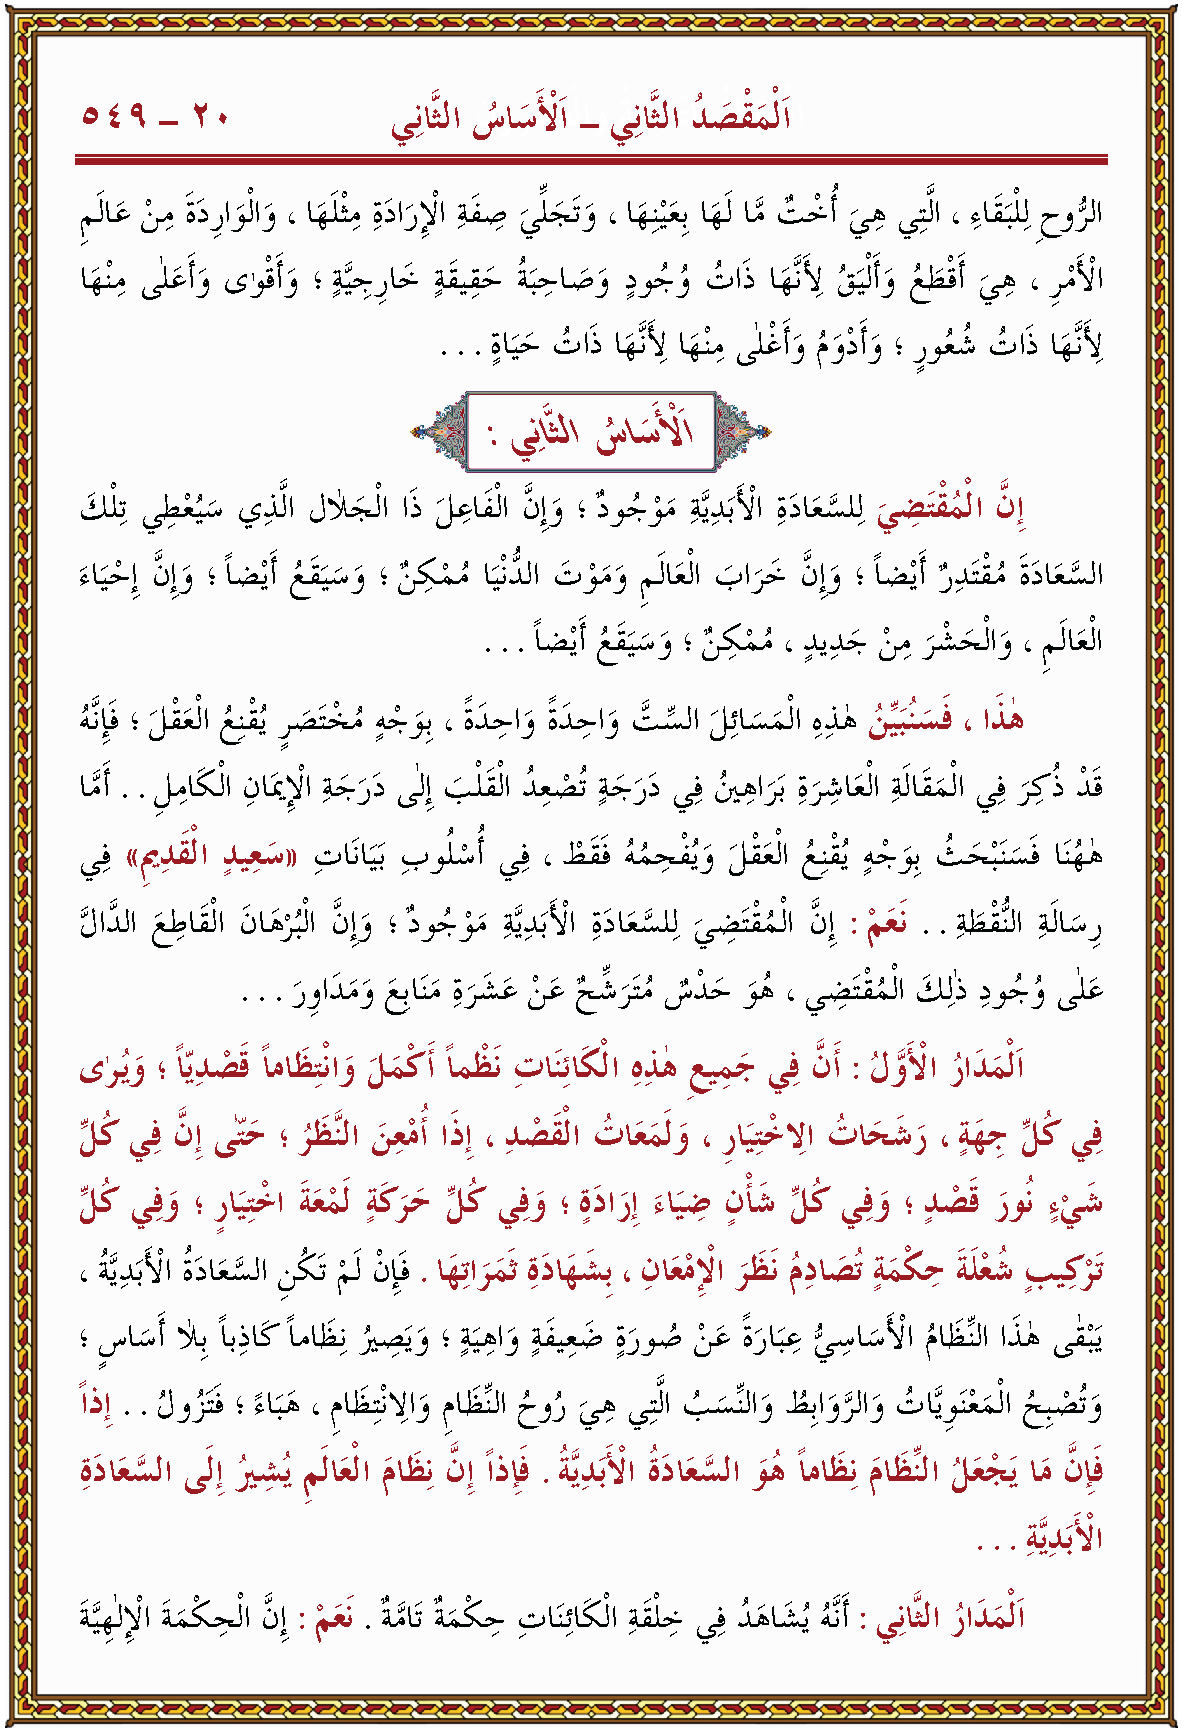 اَلْمَقْصَدُ الثَّانِي ــ اَلْأَسَاسُ الثَّانِي ٢٠ ــ ٥٤٩
الرُّوحِ لِلْبَقَاءِ ، الَّتِي هِيَ أُخْتٌ مَّا لَهَا بِعَيْنِهَا ، وَتَجَلِّيَ صِفَةِ الْإِرَادَةِ مِثْلَهَا ، وَالْوَارِدَةَ مِنْ عَالَمِ
الْأَمْرِ ، هِيَ أَقْطَعُ وَأَلْيَقُ لِأَنَّهَا ذَاتُ وُجُودٍ وَصَاحِبَةُ حَقِيقَةٍ خَارِجِيَّةٍ ؛ وَأَقْوٰى وَأَعَلٰى مِنْهَا
لِأَنَّهَا ذَاتُ شُعُورٍ ؛ وَأَدْوَمُ وَأَغْلٰى مِنْهَا لِأَنَّهَا ذَاتُ حَيَاةٍ . . .
اَلْأَسَاسُ الثَّانِي :
إِنَّ الْمُقْتَضِيَ لِلسَّعَادَةِ الْأَبَدِيَّةِ مَوْجُودٌ ؛ وَإِنَّ الْفَاعِلَ ذَا الْجَلَالِ الَّذِي سَيُعْطِي تِلْكَ
السَّعَادَةَ مُقْتَدِرٌ أَيْضاً ؛ وَإِنَّ خَرَابَ الْعَالَمِ وَمَوْتَ الدُّنْيَا مُمْكِنٌ ؛ وَسَيَقَعُ أَيْضاً ؛ وَإِنَّ إِحْيَاءَ
الْعَالَمِ ، وَالْحَشْرَ مِنْ جَدِيدٍ ، مُمْكِنٌ ؛ وَسَيَقَعُ أَيْضاً . . .
هٰذَا ، فَسَنُبَيِّنُ هٰذِهِ الْمَسَائِلَ السِّتَّ وَاحِدَةً وَاحِدَةً ، بِوَجْهٍ مُخْتَصَرٍ يُقْنِعُ الْعَقْلَ ؛ فَإِنَّهُ
قَدْ ذُكِرَ فِي الْمَقَالَةِ الْعَاشِرَةِ بَرَاهِينُ فِي دَرَجَةٍ تُصْعِدُ الْقَلْبَ إِلٰى دَرَجَةِ الْإِيمَانِ الْكَامِلِ . . أَمَّا
هٰهُنَا فَسَنَبْحَثُ بِوَجْهٍ يُقْنِعُ الْعَقْلَ وَيُفْحِمُهُ فَقَطْ ، فِي أُسْلُوبِ بَيَانَاتِ «سَعِيدٍ الْقَدِيمِ» فِي
رِسَالَةِ النُّقْطَةِ . . نَعَمْ : إِنَّ الْمُقْتَضِيَ لِلسَّعَادَةِ الْأَبَدِيَّةِ مَوْجُودٌ ؛ وَإِنَّ الْبُرْهَانَ الْقَاطِعَ الدَّالَّ
عَلٰى وُجُودِ ذٰلِكَ الْمُقْتَضِي ، هُوَ حَدْسٌ مُتَرَشِّحٌ عَنْ عَشَرَةِ مَنَابِعَ وَمَدَاوِرَ . . .
اَلْمَدَارُ الْأَوَّلُ : أَنَّ فِي جَمِيعِ هٰذِهِ الْكَائِنَاتِ نَظْماً أَكْمَلَ وَانْتِظَاماً قَصْدِيّاً ؛ وَيُرٰى
فِي كُلِّ جِهَةٍ ، رَشَحَاتُ الِاخْتِيَارِ ، وَلَمَعَاتُ الْقَصْدِ ، إِذَا أُمْعِنَ النَّظَرُ ؛ حَتّٰى إِنَّ فِي كُلِّ
شَيْءٍ نُورَ قَصْدٍ ؛ وَفِي كُلِّ شَأْنٍ ضِيَاءَ إِرَادَةٍ ؛ وَفِي كُلِّ حَرَكَةٍ لَمْعَةَ اخْتِيَارٍ ؛ وَفِي كُلِّ
تَرْكِيبٍ شُعْلَةَ حِكْمَةٍ تُصَادِمُ نَظَرَ الْإِمْعَانِ ، بِشَهَادَةِ ثَمَرَاتِهَا . فَإِنْ لَمْ تَكُنِ السَّعَادَةُ الْأَبَدِيَّةُ ،
يَبْقٰى هٰذَا النِّظَامُ الْأَسَاسِيُّ عِبَارَةً عَنْ صُورَةٍ ضَعِيفَةٍ وَاهِيَةٍ ؛ وَيَصِيرُ نِظَاماً كَاذِباً بِلَا أَسَاسٍ ؛
وَتُصْبِحُ الْمَعْنَوِيَّاتُ وَالرَّوَابِطُ وَالنِّسَبُ الَّتِي هِيَ رُوحُ النِّظَامِ وَالِانْتِظَامِ ، هَبَاءً ؛ فَتَزُولُ . . إِذاً
فَإِنَّ مَا يَجْعَلُ النِّظَامَ نِظَاماً هُوَ السَّعَادَةُ الْأَبَدِيَّةُ . فَإِذاً إِنَّ نِظَامَ الْعَالَمِ يُشِيرُ إِلَى السَّعَادَةِ
الْأَبَدِيَّةِ . . .
اَلْمَدَارُ الثَّانِي : أَنَّهُ يُشَاهَدُ فِي خِلْقَةِ الْكَائِنَاتِ حِكْمَةٌ تَامَّةٌ . نَعَمْ : إِنَّ الْحِكْمَةَ الْإِلٰهِيَّةَ